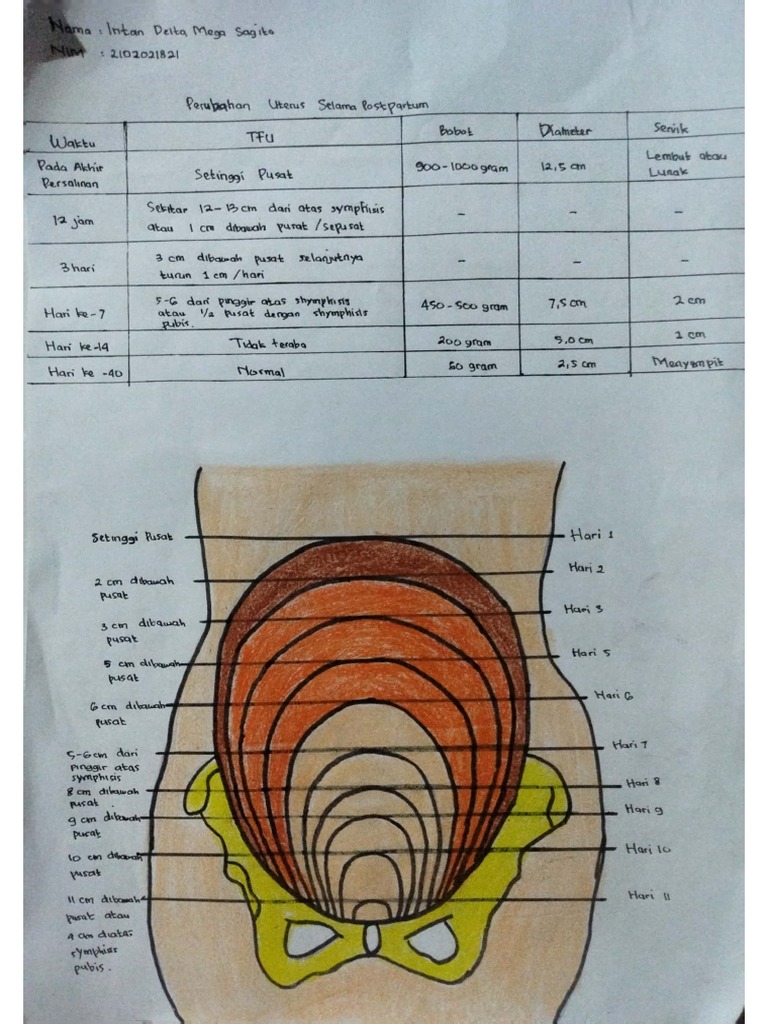 Nama : Intan Delta Mega Sagita
NIM : 2102021821
Perubahan Uterus Selama Postpartum
Waktu TFU Bobot Diameter Servik
Pada Akhir Persalinan Setinggi Pusat 900-1000 gram 12,5 cm Lembut atau Lunak
12 jam Sekitar 12-13 cm dari atas symphisis
atau 1 cm dibawah pusat /sepusat - - -
3 hari 3 cm dibawah pusat selanjutnya
turun 1 cm /hari - - -
Hari ke-7 5-6 dari pinggir atas shymphisis
atau 1/2 pusat dengan shymphisis
pubis. 450-500 gram 7,5 cm 2 cm
Hari ke-14 Tidak teraba 200 gram 5,0 cm 1 cm
Hari ke-40 Normal 50 gram 2,5 cm Menyempit
Setinggi Pusat Hari 1
2 cm dibawah
pusat Hari 2
3 cm dibawah
pusat Hari 3
5 cm dibawah
pusat Hari 5
6 cm dibawah
pusat Hari 6
5-6 cm dari
pinggir atas
symphisis Hari 7
8 cm dibawah
pusat. Hari 8
9 cm dibawah
pusat Hari 9
10 cm dibawah
pusat Hari 10
11 cm dibawah
pusat atau
4 cm diatas
symphisis
pubis. Hari 11